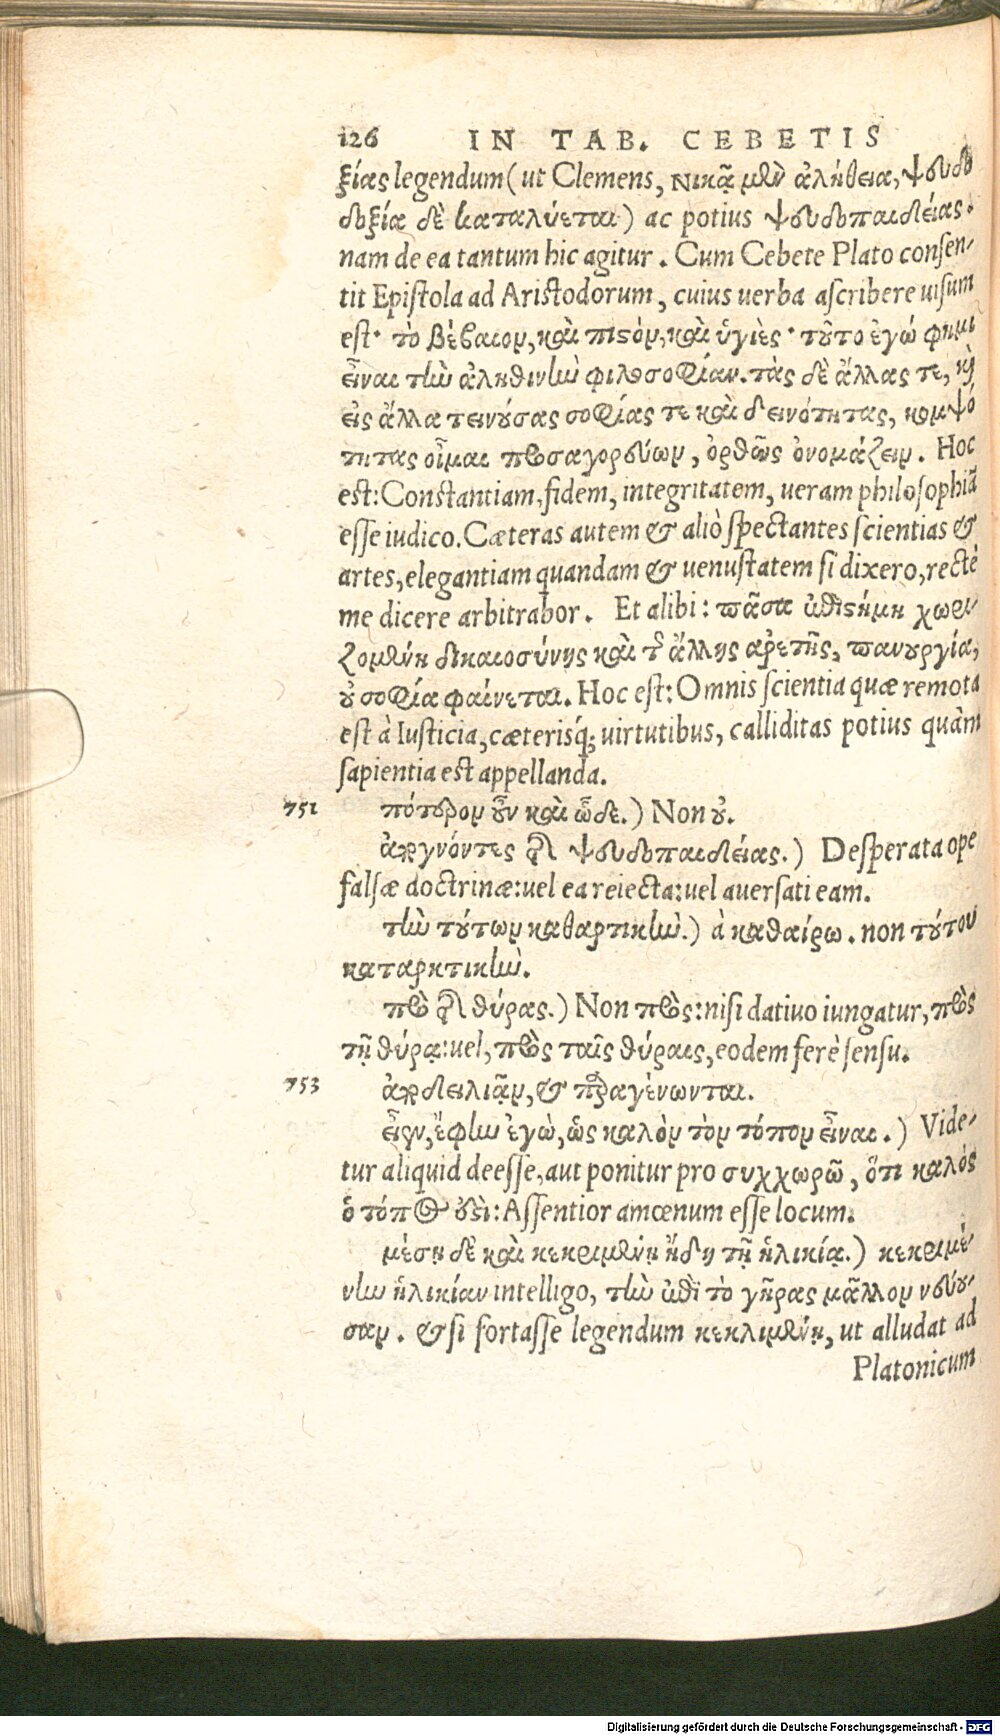 126 IN TAB. CEBETIS
ξίας legendum (ut Clemens, Νικᾷ μὲν ἀλήθεια, ψευδο
δοξία δὲ καταλύεται) ac potius ψευδοπαιδείας.
nam de ea tantum hic agitur. Cum Cebete Plato consen-
tit Epistola ad Aristodorum, cuius uerba ascribere uisum
est· τὸ βέβαιον, καὶ πιστὸν, καὶ ὑγιὲς· τοῦτο ἐγώ φημι
εἶναι τὴν ἀληθινὴν φιλοσοφίαν. τὰς δὲ ἄλλας τε, καὶ
εἰς ἄλλα τεινούσας σοφίας τε καὶ δεινότητας, κομψό
τητας οἶμαι προσαγορεύων, ὀρθῶς ὀνομάζειν. Hoc
est: Constantiam, fidem, integritatem, ueram philosophiã
esse iudico. Cæteras autem & aliò spectantes scientias &
artes, elegantiam quandam & uenustatem si dixero, rectè
me dicere arbitrabor. Et alibi: πᾶσα ἐπιστήμη χωρι-
ζομένη δικαιοσύνης καὶ τῆς ἄλλης ἀρετῆς, πανουργία,
οὐ σοφία φαίνεται. Hoc est: Omnis scientia quæ remota
est à Iusticia, cæterisq́; uirtutibus, calliditas potius quàm
sapientia est appellanda.
751 πότερον οὖν καὶ ὧδε.) Non οὐ.
ἀπογνόντες τῆς ψευδοπαιδείας.) Desperata ope
falsæ doctrinæ: uel ea reiecta: uel auersati eam.
τὴν τούτων καθαρτικὴν.) à καθαίρω. non τούτου
καταρκτικὴν.
πρὸ τῆς θύρας.) Non πρὸς: nisi datiuo iungatur, πρὸς
τῇ θύρᾳ: uel, πρὸς ταῖς θύραις, eodem ferè sensu.
753 ἀποδειλιᾷν, & παραγένωνται.
εἶεν, ἔφην ἐγὼ, ὡς καλὸν τὸν τόπον εἶναι.) Vide-
tur aliquid deesse, aut ponitur pro συχχωρῶ, ὅτι καλός
ὁ τόπος ἐστὶ: Assentior amœnum esse locum.
μέσῃ δὲ καὶ κεκριμένῃ ἤδη τῇ ἡλικίᾳ.) κεκριμέ-
νην ἡλικίαν intelligo, τὴν ἐπὶ τὸ γῆρας μᾶλλον νεύου-
σαν. & si fortasse legendum κεκλιμένῃ, ut alludat ad
Platonicum
Digitalisierung gefördert durch die Deutsche Forschungsgemeinschaft - DFG